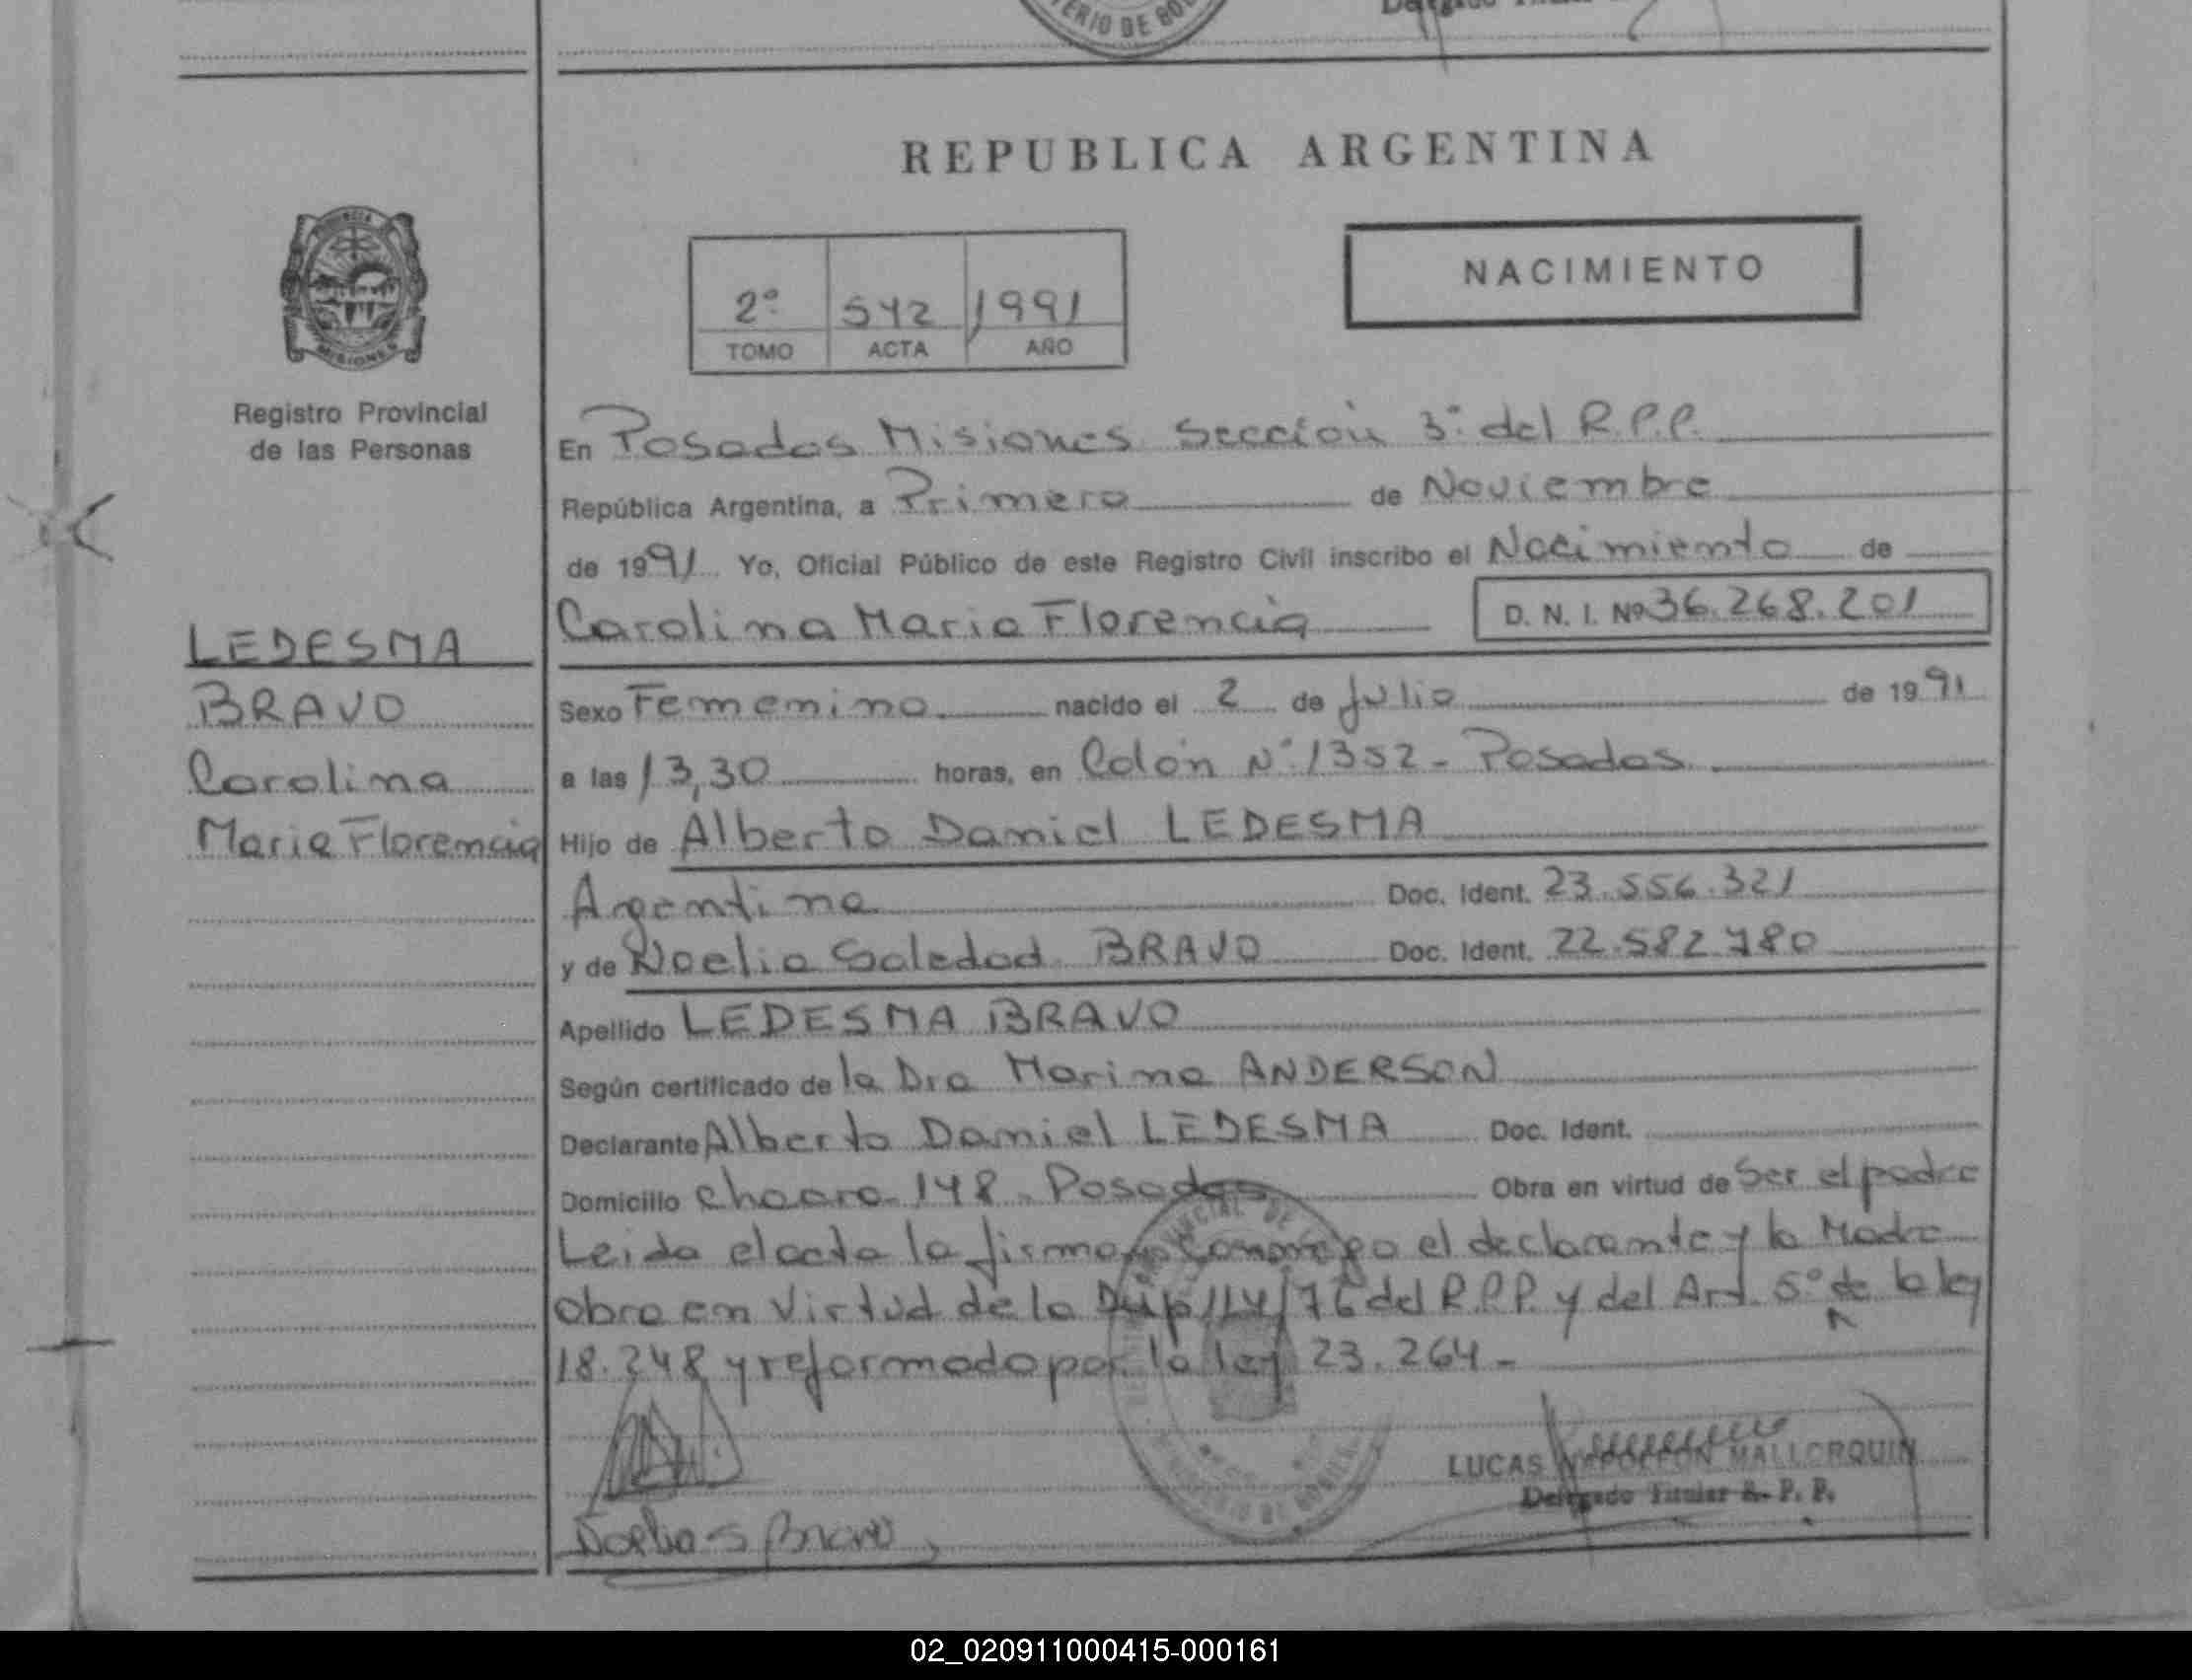 REPUBLICA ARGENTINA
NACIMIENTO
2º 542 1991
TOMO ACTA AÑO
MISIONES
Registro Provincial
de las Personas
LEDESMA
BRAVO
Carolina
Maria Florencia
En Posadas Misiones Sección 3ª del R.P.P.
República Argentina, a Primero de Noviembre
de 1991 Yo, Oficial Público de este Registro Civil inscribo el Nacimiento de
Carolina Maria Florencia D. N. I. Nº 36.268.201
Sexo Femenino nacido el 2 de Julio de 1991
a las 13,30 horas, en Colón Nº 1352 - Posadas
Hijo de Alberto Daniel LEDESMA
Argentina Doc. Ident. 23.556.321
y de Noelia Soledad BRAVO Doc. Ident. 22.582.780
Apellido LEDESMA BRAVO
Según certificado de la Dra Marina ANDERSON
Declarante Alberto Daniel LEDESMA Doc. Ident.
Domicilio Chacra 148 Posadas Obra en virtud de Ser el padre
Leida el acta la firman conmigo el declarante y la Madre
obra en Virtud de la Disp 114/76 del R.P.P. y del Art. 5º de la ley
18.248 y reformado por la ley 23.264 -
LUCAS NAPOLEON MALLORQUIN
Delegado Titular R. P. P.
Noelia S Bravo
02_020911000415-000161